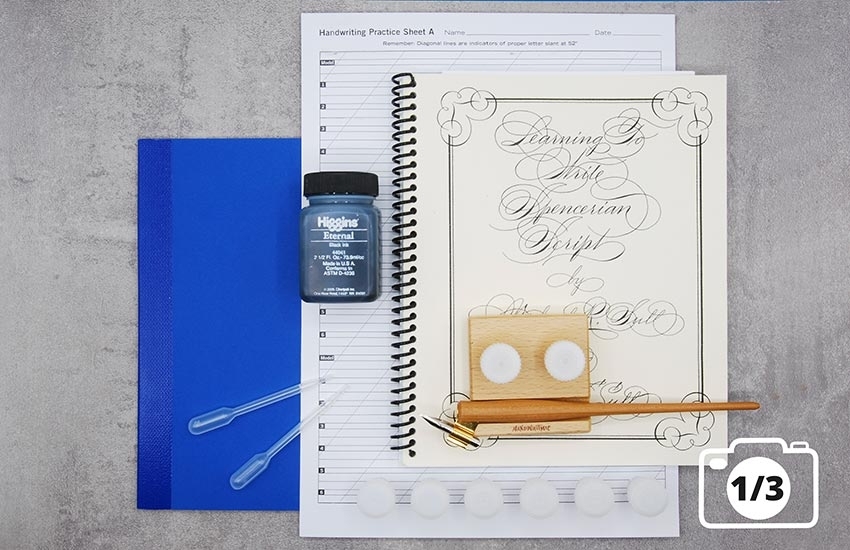 Handwriting Practice Sheet A Name Date
Remember: Diagonal lines are indicators of proper letter slant at 52°
Model
1
2
3
4
5
6
Model
1
5
6
Higgins
Eternal
Black Ink
44041
2 1/2 Fl. Oz.-73.9ml/cc
Made in U.S.A.
Conforms to
ASTM D-4236
Learning To
Write
Spencerian
Script
by
Sull
1/3